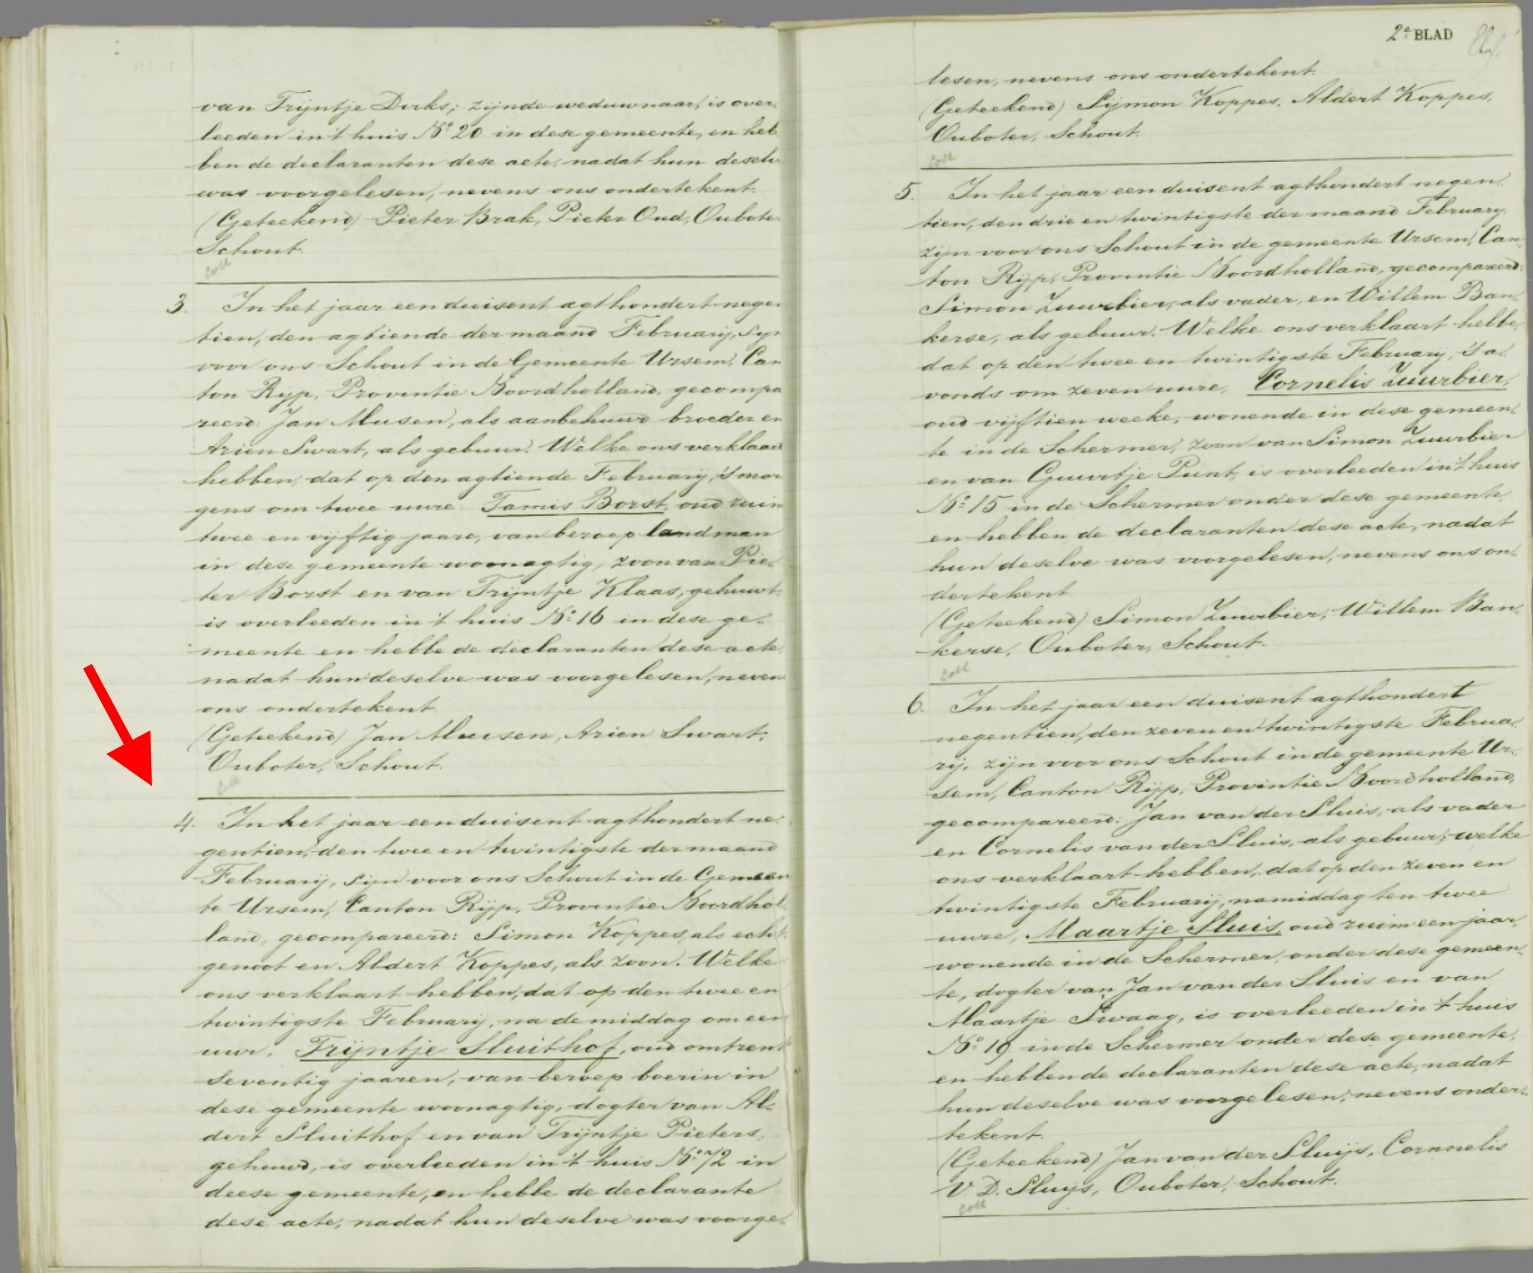 van Trijntje Dirks; zijnde weduwnaar, is over-
leeden in 't huis N.o 20 in dese gemeente, en heb
ben de declaranten dese acte, nadat hun deselv
was voorgelesen, nevens ons ondertekent.
(Geteekend) Pieter Brak, Pieter Oud, Ouboter
Schout.
Coll
3. In het jaar een duisent agthondert nege
tien, den agtiende der maand Februarij, syn
voor ons Schout in de Gemeente Ursem, Can
ton Ryp, Proventie Noordholland, gecompa
reerd: Jan Musen, als aanbehuwd broeder en
Arien Swart, als gebuur. Welke ons verklaard
hebben, dat op den agtiende February, 's mor
gens om twee uure. Tamis Borst, oud ruim
twee en vijftig jaare, van beroep landman
in dese gemeente woonagtig, zoon van Pie-
ter Borst en van Trijntje Klaas, gehuwt,
is overleeden in 't huis N.o 16 in dese ge-
meente en hebbe de declaranten dese acte,
nadat hun deselve was voorgelesen, neven
ons ondertekent
(Geteekend) Jan Muesen, Arien Swart,
Ouboter, Schout.
Coll
4. In het jaar een duisent agthondert ne-
gentien, den twee en twintigste der maand
February, sijn voor ons Schout in de Gemeen
te Ursem, Canton Rijp, Proventie Noordhol-
land, gecompareerd: Simon Koppes, als echt-
genoot en Aldert Koppes, als zoon. Welke
ons verklaart hebben, dat op den twee en
twintigste Februarij, na de middag om een
uur, Trijntje Sluithof, oud omtrent
seventig jaaren, van beroep boerin in
dese gemeente woonagtig, dogter van Al-
dert Sluithof en van Trijntje Pieters,
gehuwd, is overleeden in 't huis N.o 72 in
deese gemeente, en hebbe de declarante
dese acte, nadat hun deselve was voorge-
2e BLAD
lesen, nevens ons ondertekent.
(Geteekend) Sijmon Koppes, Aldert Koppes,
Ouboter, Schout.
Coll
5. In het jaar een duisent agthondert negen
tien, den drie en twintigste der maand February,
zijn voor ons Schout in de gemeente Ursem, Can-
ton Rijp, Proventie Noordholland, gecompareerd:
Simon Zuurbier, als vader, en Willem Ban-
kerse, als gebuur. Welke ons verklaart hebbe,
dat op den twee en twintigste February, 's a-
vonds om zeven uure, Cornelis Zuurbier,
oud vijftien weeke, wonende in dese gemeen-
te in de Schermer, zoon van Simon Zuurbier
en van Guurtje Punt, is overleeden in 't huis
N.o 15 in de Schermer onder dese gemeente,
en hebben de declaranten dese acte, nadat
hun deselve was voorgelesen, nevens ons on-
dertekent
(Geteekend) Simon Zuurbier, Willem Ban-
kerse, Ouboter, Schout.
Coll
6. In het jaar een duisent agthondert
negentien, den zeven en twintigste Februa-
rij, zijn voor ons Schout in de gemeente Ur-
sem, Canton Rijp, Provintie Noordholland,
gecompareerd: Jan van der Sluis, als vader
en Cornelis van der Sluis, als gebuur; welke
ons verklaart hebben, dat op den zeven en
twintigste Februarij, namiddag ten twee
uure, Maartje Sluis, oud ruim een jaar,
wonende in de Schermer, onder dese gemeen-
te, dogter van Jan van der Sluis en van
Maartje Swaag, is overleeden in 't huis
N.o 19 in de Schermer onder dese gemeente,
en hebben de declaranten dese acte, nadat
hun deselve was voorgelesen, nevens onder-
tekent.
(Geteekend) Jan van der Sluijs, Cornnelis
V D. Sluijs, Ouboter, Schout.
Coll